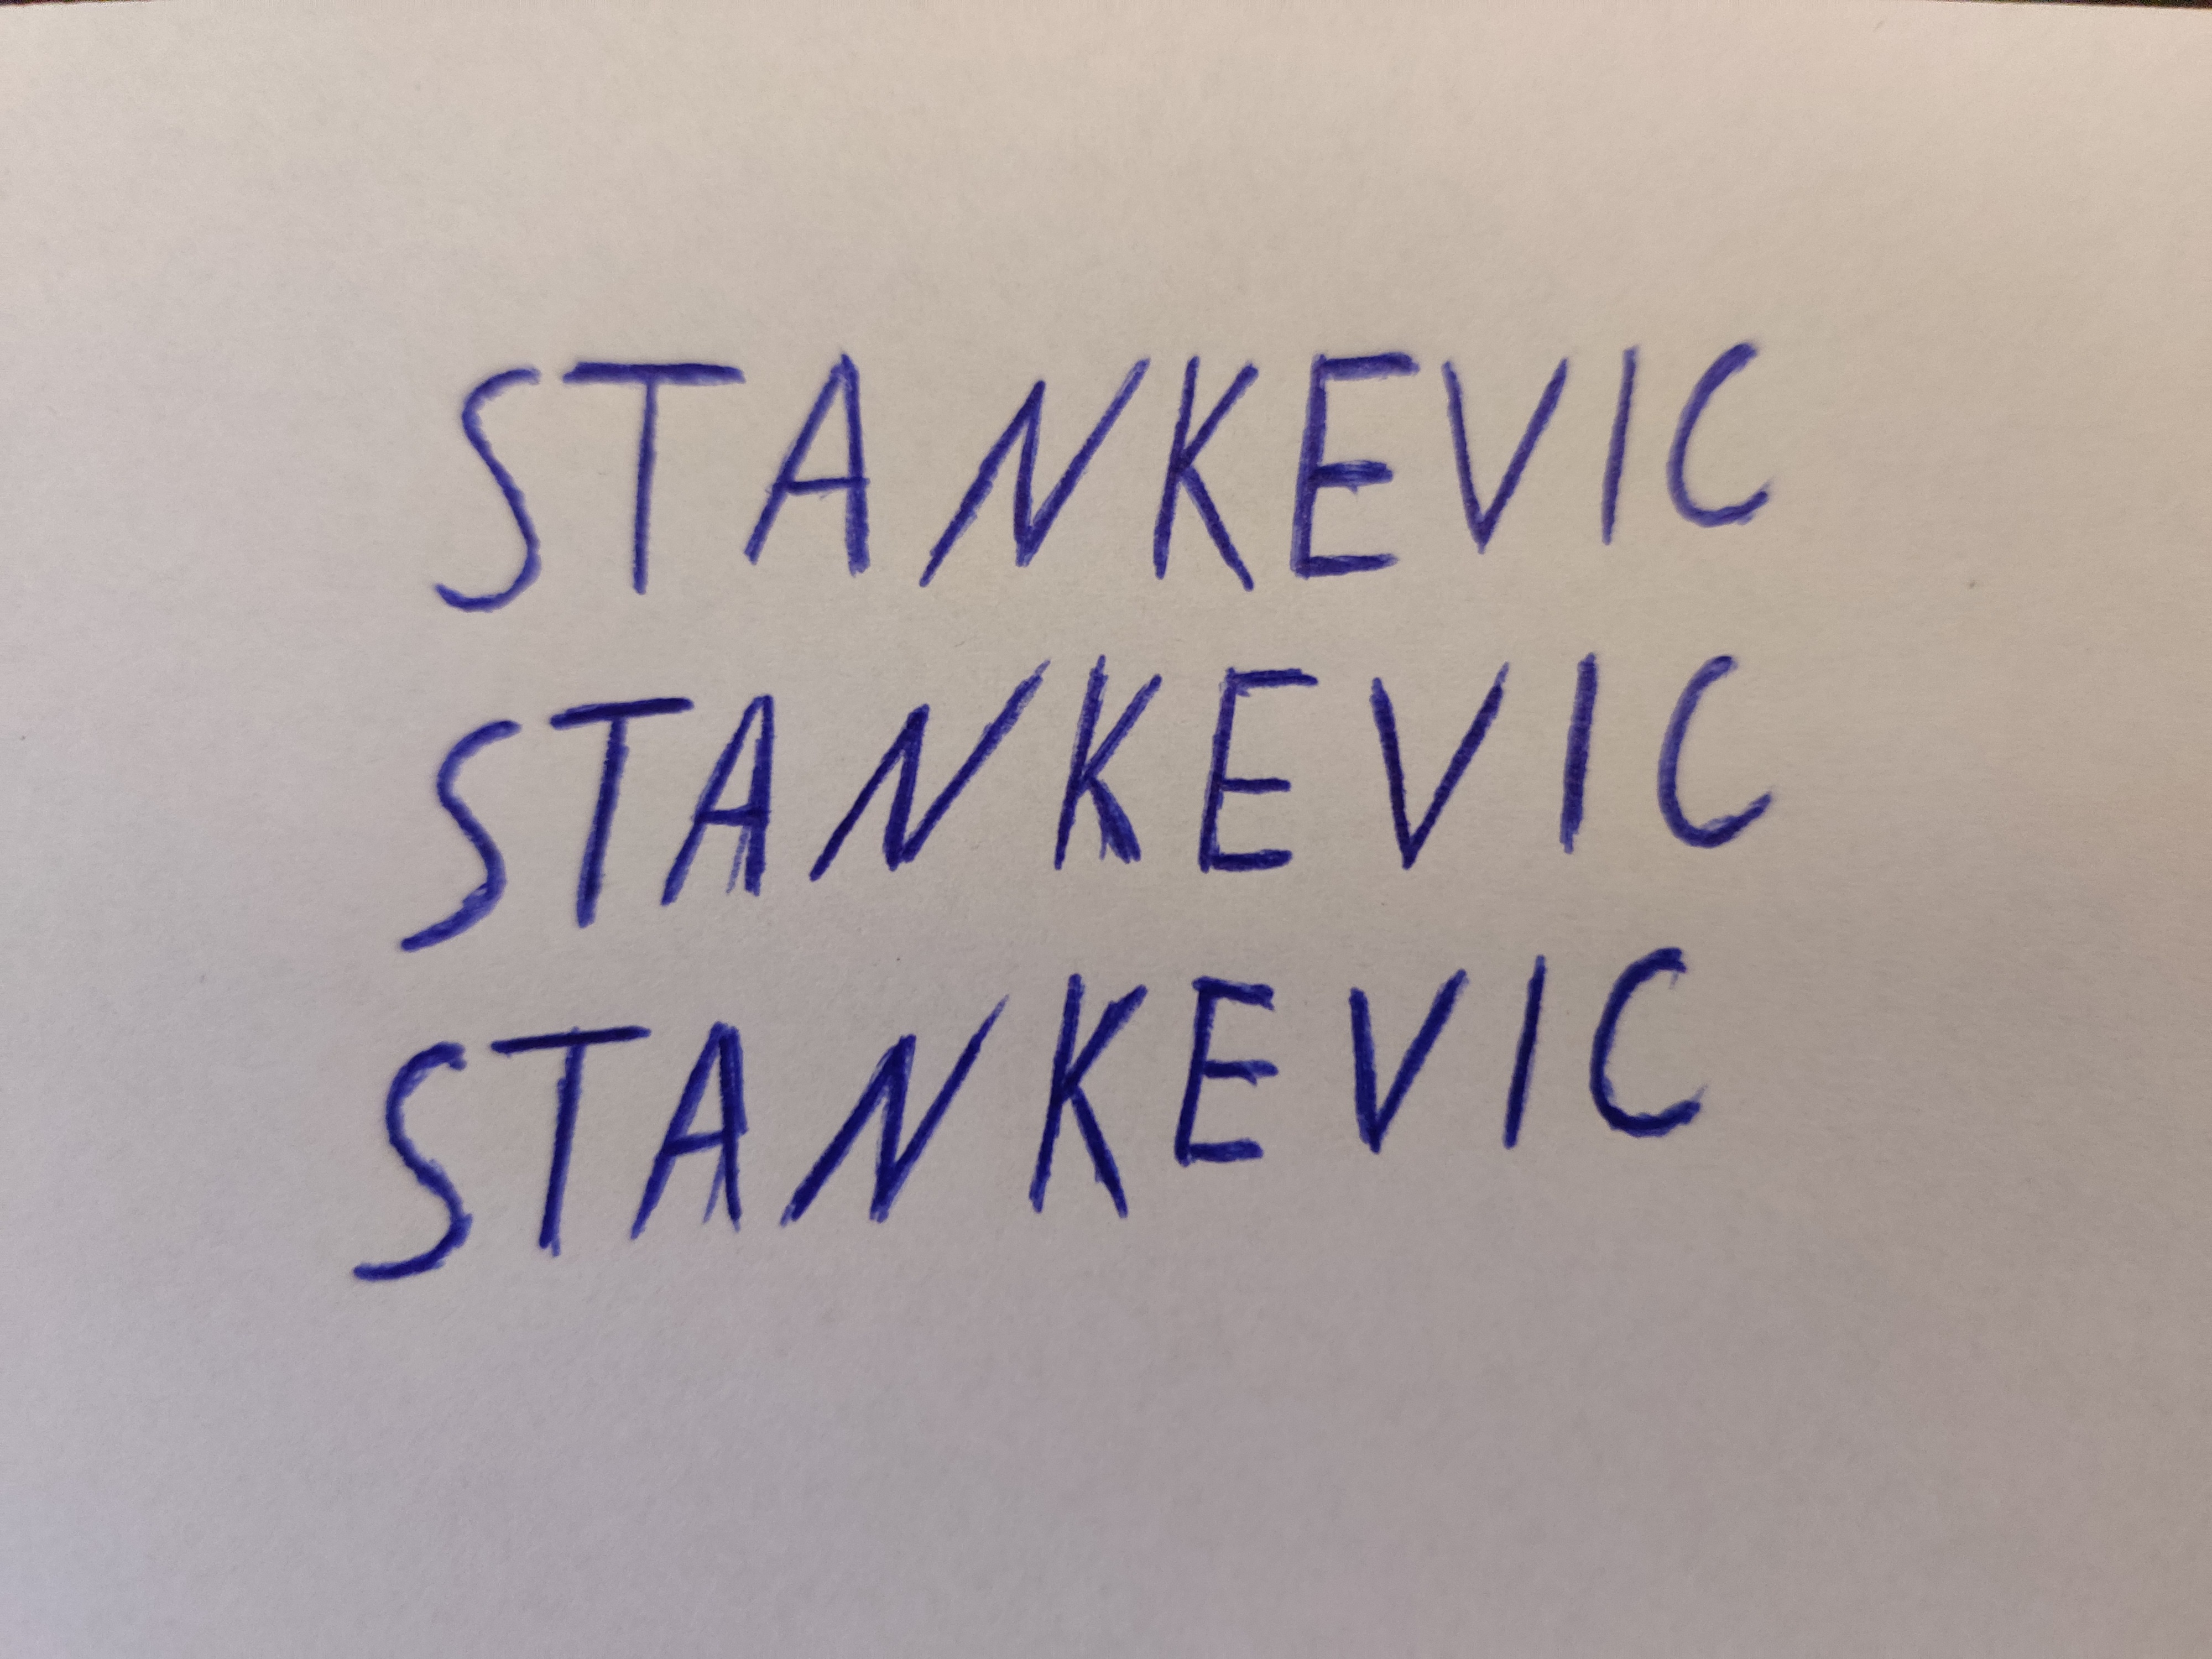 STANKEVIC
STANKEVIC
STANKEVIC